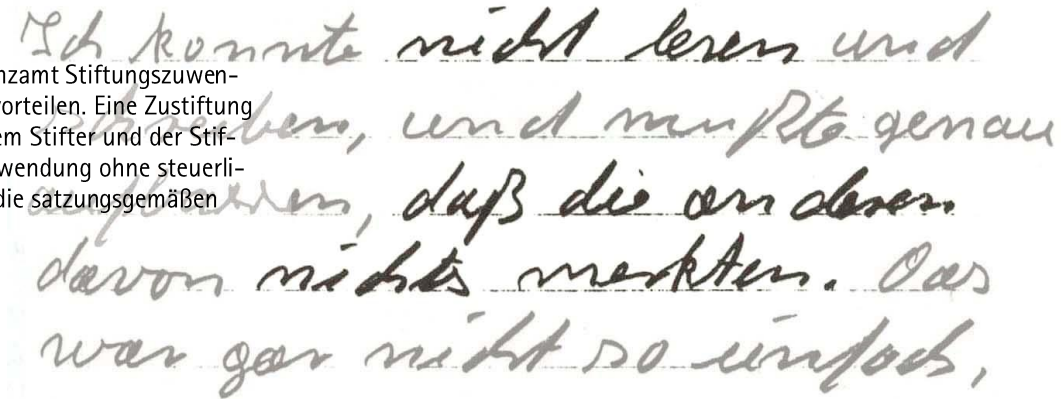 Ich konnte nicht lesen und
schreiben, und mußte genau
aufpassen, daß die anderen
davon nichts merkten. Das
war gar nicht so einfach,
nzamt Stiftungszuwen-
vorteilen. Eine Zustiftung
em Stifter und der Stif-
wendung ohne steuerli-
die satzungsgemäßen